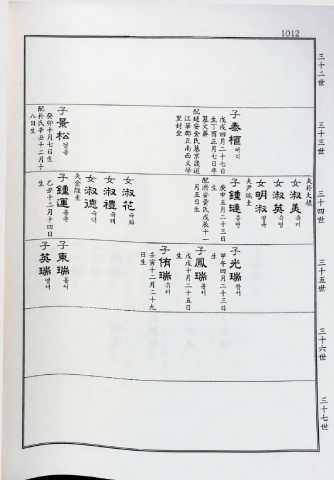 1012
三十二世
三十三世
子泰植태식
戊戌四月二十七日
生丁酉五月七日卒
墓文泰
配延安金氏墓京畿道
江華郡正南西文学
里封金
子景松경송
癸卯十月七日生
配朴氏辛丑十二月十
八日生
三十四世
夫朴大鎬
女淑美숙미
女淑英숙영
女明淑명숙
夫尹瑞圭
子鍾璉종련
庚申五月二十三日
生
配済安黃氏戊辰十一
月五日生
女淑花숙화
女淑禮숙례
女淑德숙덕
夫金經圭
子鍾運종운
乙丑十二月十四日
生
三十五世
子光瑞광서
甲午四月二十三日
生
子鳳瑞봉서
戊戌十月二十五日
生
子侑瑞유서
壬寅十二月二十九
日生
子東瑞동서
子英瑞영서
三十六世
三十七世